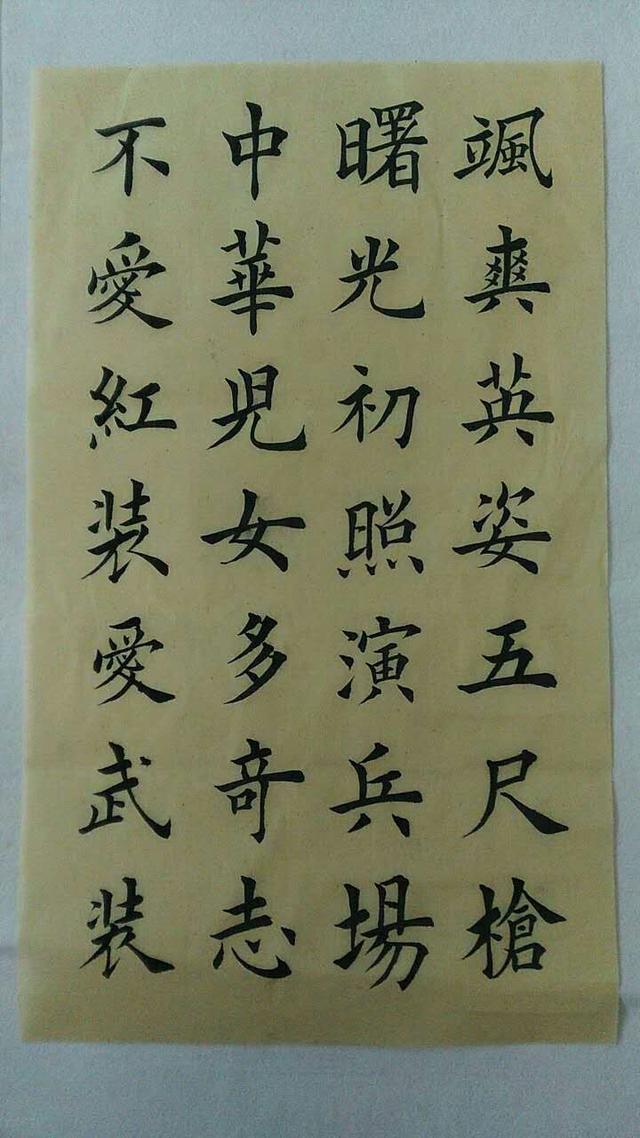 颯爽英姿五尺槍
曙光初照演兵場
中華児女多奇志
不愛紅装愛武装